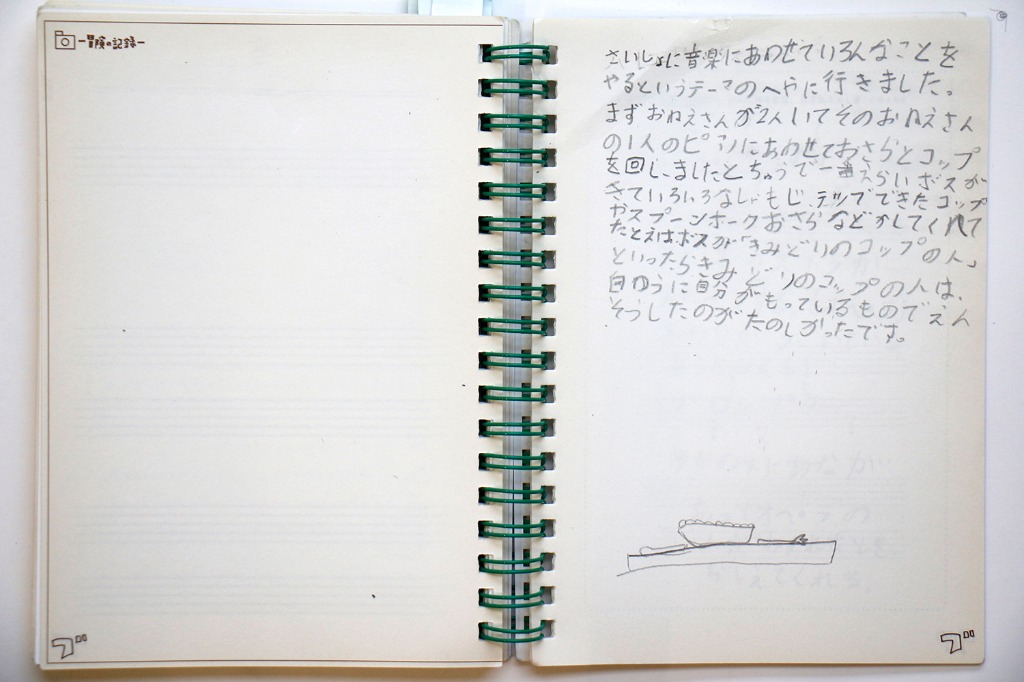 -冒険の記録-
さいしょに音楽にあわせていろんなことを
やるというテーマのへやに行きました。
まずおねえさんが2人いてそのおねえさん
の1人のピアノにあわせておさらとコップ
を回しましたとちゅうで一番えらいボスが
きていろいろな
できたコップ
やスプーンホークおさらなどかしてくれて
たとえばボスが「きみどりのコップの人」
といったらきみどりのコップの人は、
自ゆうに自分がもっているものでえん
そうしたのがたのしかったです。